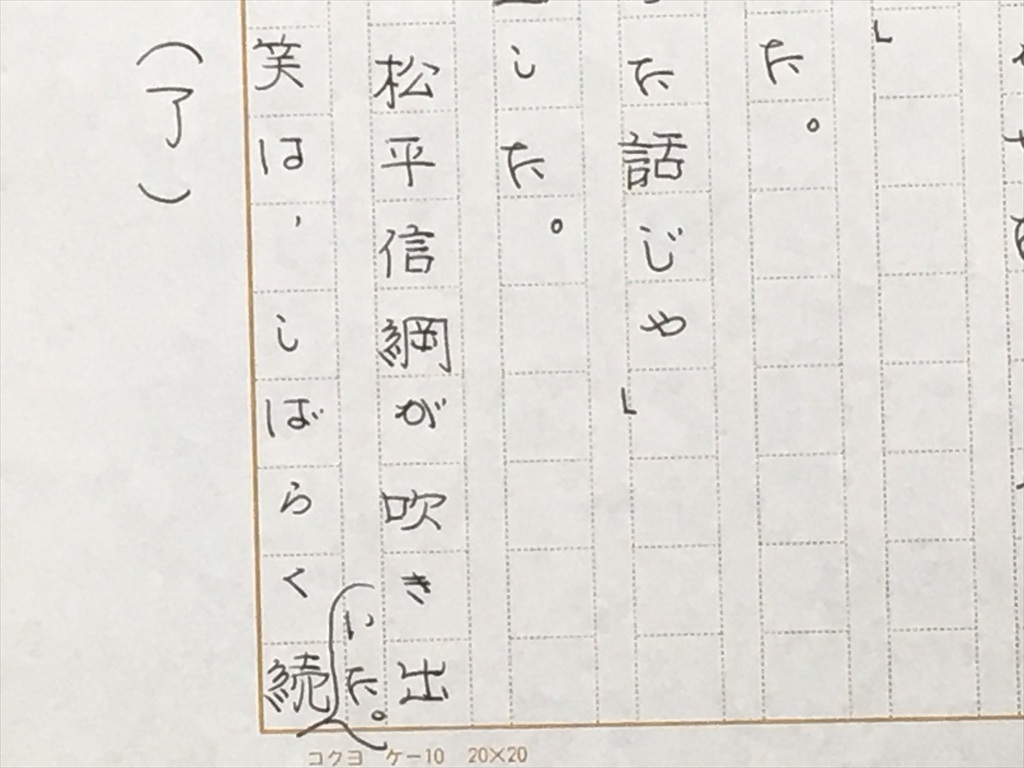 」
た。
た話じゃ」
した。
松平信綱が吹き出
笑は，しばらく続いた。
（了）
コクヨ ケー10 20×20